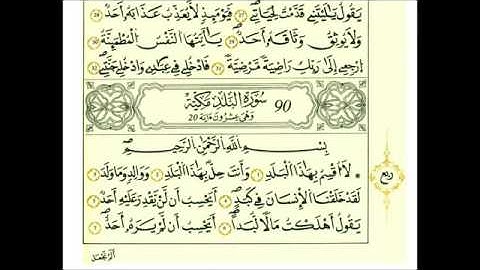 يَقُولُ يَٰلَيْتَنِي قَدَّمْتُ لِحَيَاتِي ۝ فَيَوْمَئِذٍ لَا يُعَذِّبُ عَذَابَهُ أَحَدٌ ۝
وَلَا يُوثِقُ وَثَاقَهُ أَحَدٌ ۝ يَٰأَيَّتُهَا النَّفْسُ الْمُطْمَئِنَّةُ ۝
ارْجِعِي إِلَىٰ رَبِّكِ رَاضِيَةً مَرْضِيَّةً ۝ فَادْخُلِي فِي عِبَادِي ۝ وَادْخُلِي جَنَّتِي ۝
90 سُورَةُ الْبَلَدِ مَكِّيَّةٌ
وَهْيَ عِشْرُونَ ءَايَة 20
بِسْمِ اللَّهِ الرَّحْمَٰنِ الرَّحِيمِ
لَا أُقْسِمُ بِهَٰذَا الْبَلَدِ ۝ وَأَنتَ حِلٌّ بِهَٰذَا الْبَلَدِ ۝ وَوَالِدٍ وَمَا وَلَدَ ۝
ربع
لَقَدْ خَلَقْنَا الْإِنسَانَ فِي كَبَدٍ ۝ أَيَحْسِبُ أَن لَّن يَقْدِرَ عَلَيْهِ أَحَدٌ ۝
يَقُولُ أَهْلَكْتُ مَالًا لُّبَدًا ۝ أَيَحْسِبُ أَن لَّمْ يَرَهُ أَحَدٌ ۝
أَلَمْ نَجْعَل